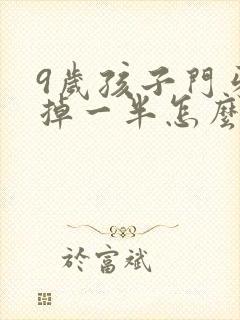 9歲孩子門牙
掉一半怎麼
於富斌